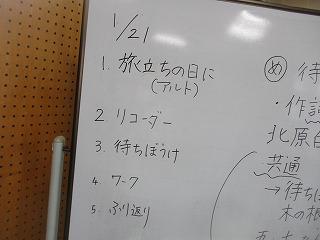 1/21
1. 旅立ちの日に
(アルト)
2 リコーダー
3. 待ちぼうけ
4. ワーク
5. ふり返り
め 待
・作詞
北原白
共通
→待ちぼ
木の根